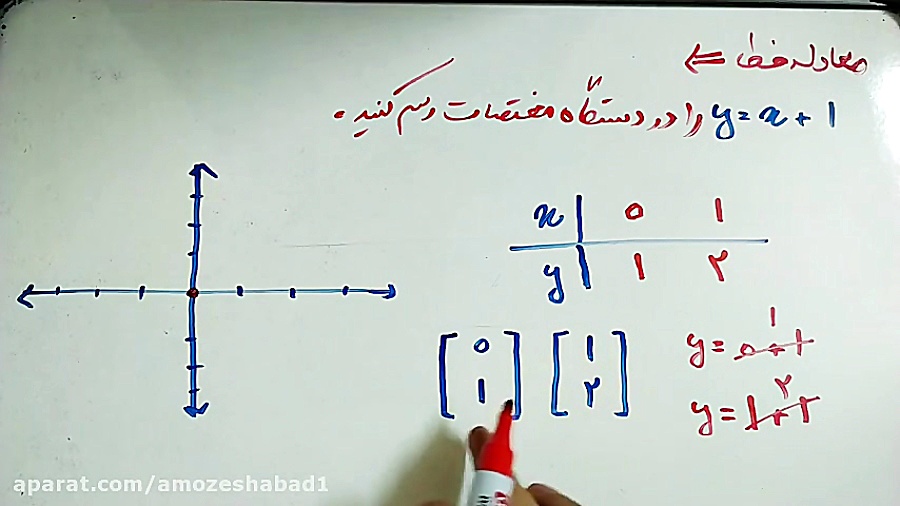 معادله خط ⇐
y = x + 1 را در دستگاه مختصات رسم کنید.
x | 0 1
y | 1 ۲
[0 1] [1 ۲]
y = 0+1 1
y = 1+1 ۲
aparat.com/amozeshabad1